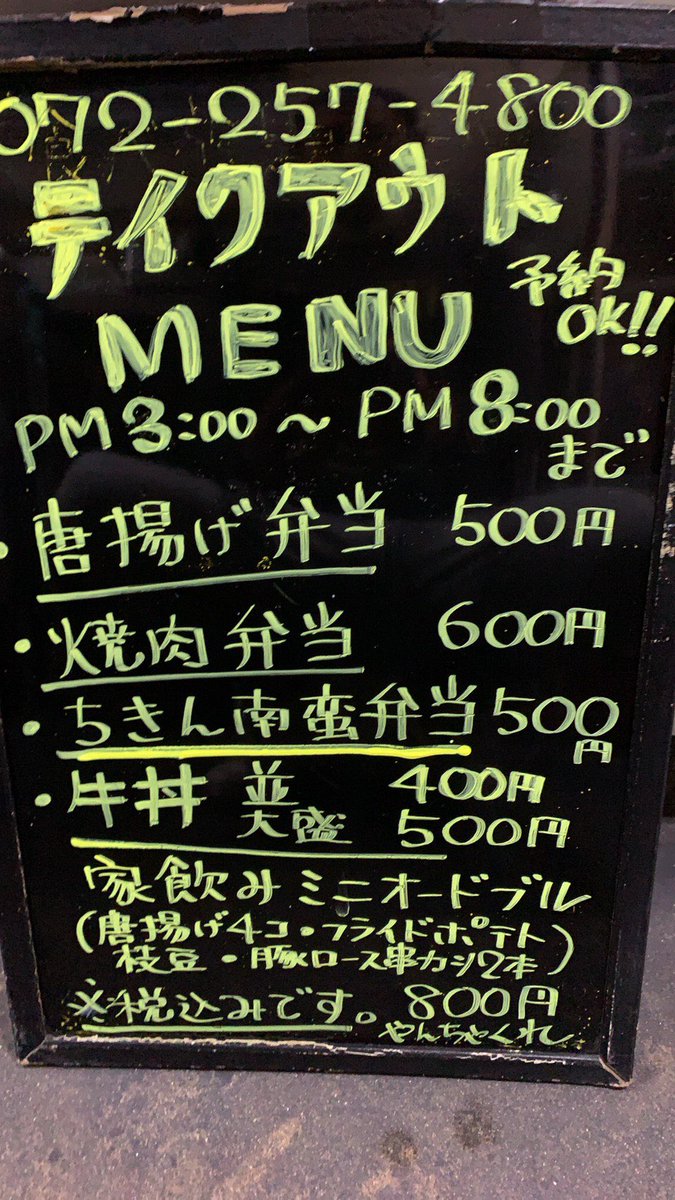 072-257-4800
テイクアウト
MENU
予約
OK!!
PM 3:00 〜 PM 8:00
まで
・唐揚げ弁当 500円
・焼肉弁当 600円
・ちきん南蛮弁当 500円
・牛丼 並 400円
大盛 500円
家飲みミニオードブル
(唐揚げ4コ・フライドポテト
枝豆・豚ロース串カツ2本)
※税込みです。 800円
やんちゃくれ